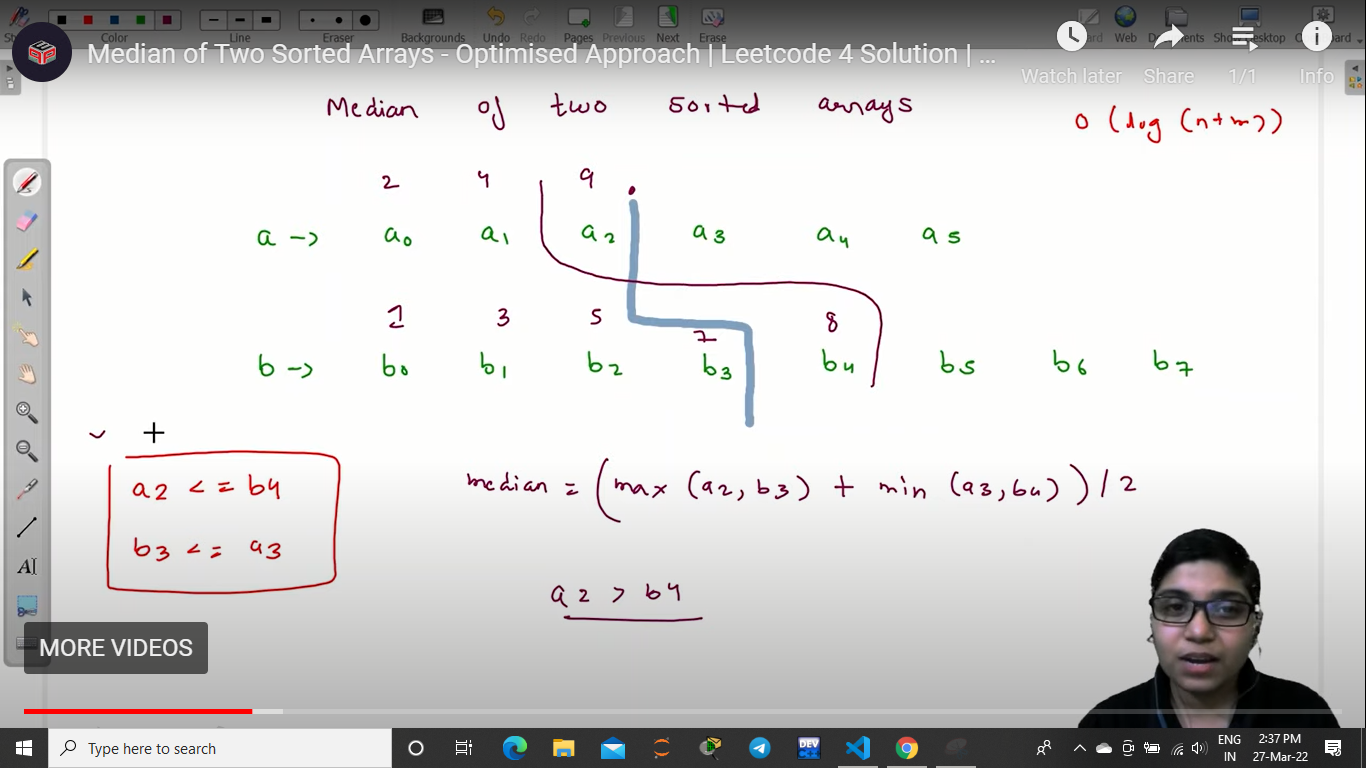 Color Line Eraser Backgrounds Undo Redo Pages Previous Next Erase Web Documents Show Desktop
Median of Two Sorted Arrays - Optimised Approach | Leetcode 4 Solution | ...
Watch later Share 1/1 Info
Median of two sorted arrays
O (log (n+m))
2 4 9
a -> a0 a1 a2 a3 a4 a5
1 3 5 7 8
b -> b0 b1 b2 b3 b4 b5 b6 b7
a2 <= b4
b3 <= a3
median = (max (a2, b3) + min (a3, b4)) / 2
a2 > b4
MORE VIDEOS
Type here to search
DEV
ENG
IN
2:37 PM
27-Mar-22